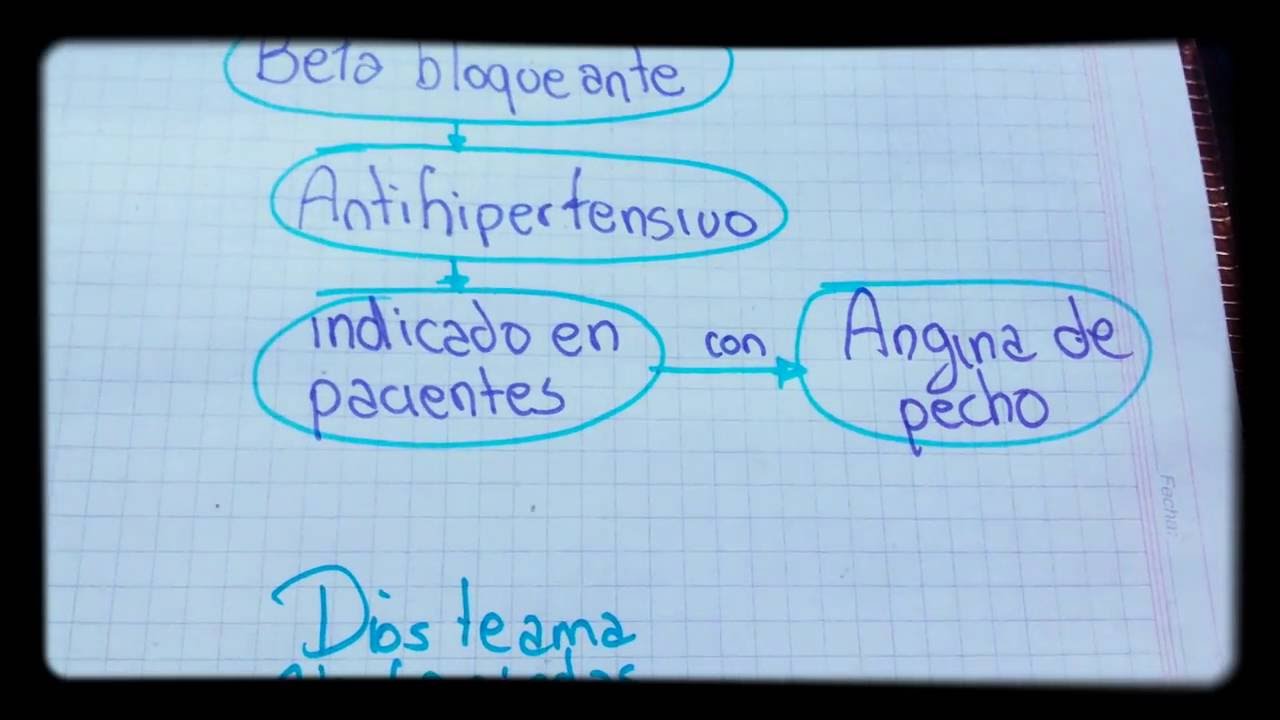 Beta bloqueante
Antihipertensivo
indicado en
pacientes
con
Angina de
pecho
Fecha:
Dios te ama